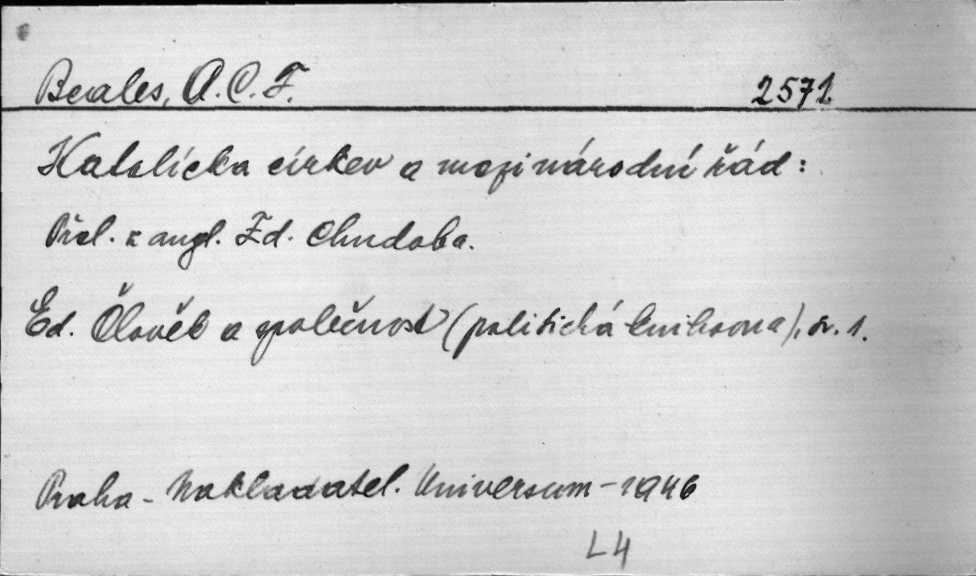 Beales, A. C. F. 2571
Katolícka církev a mezinárodní řád:
Přel. z angl. Ed. Chudoba.
Ed. Člověk a společnost (politická knihovna), sv. 1.
Praha - Nakladatel. Universum - 1946
L4